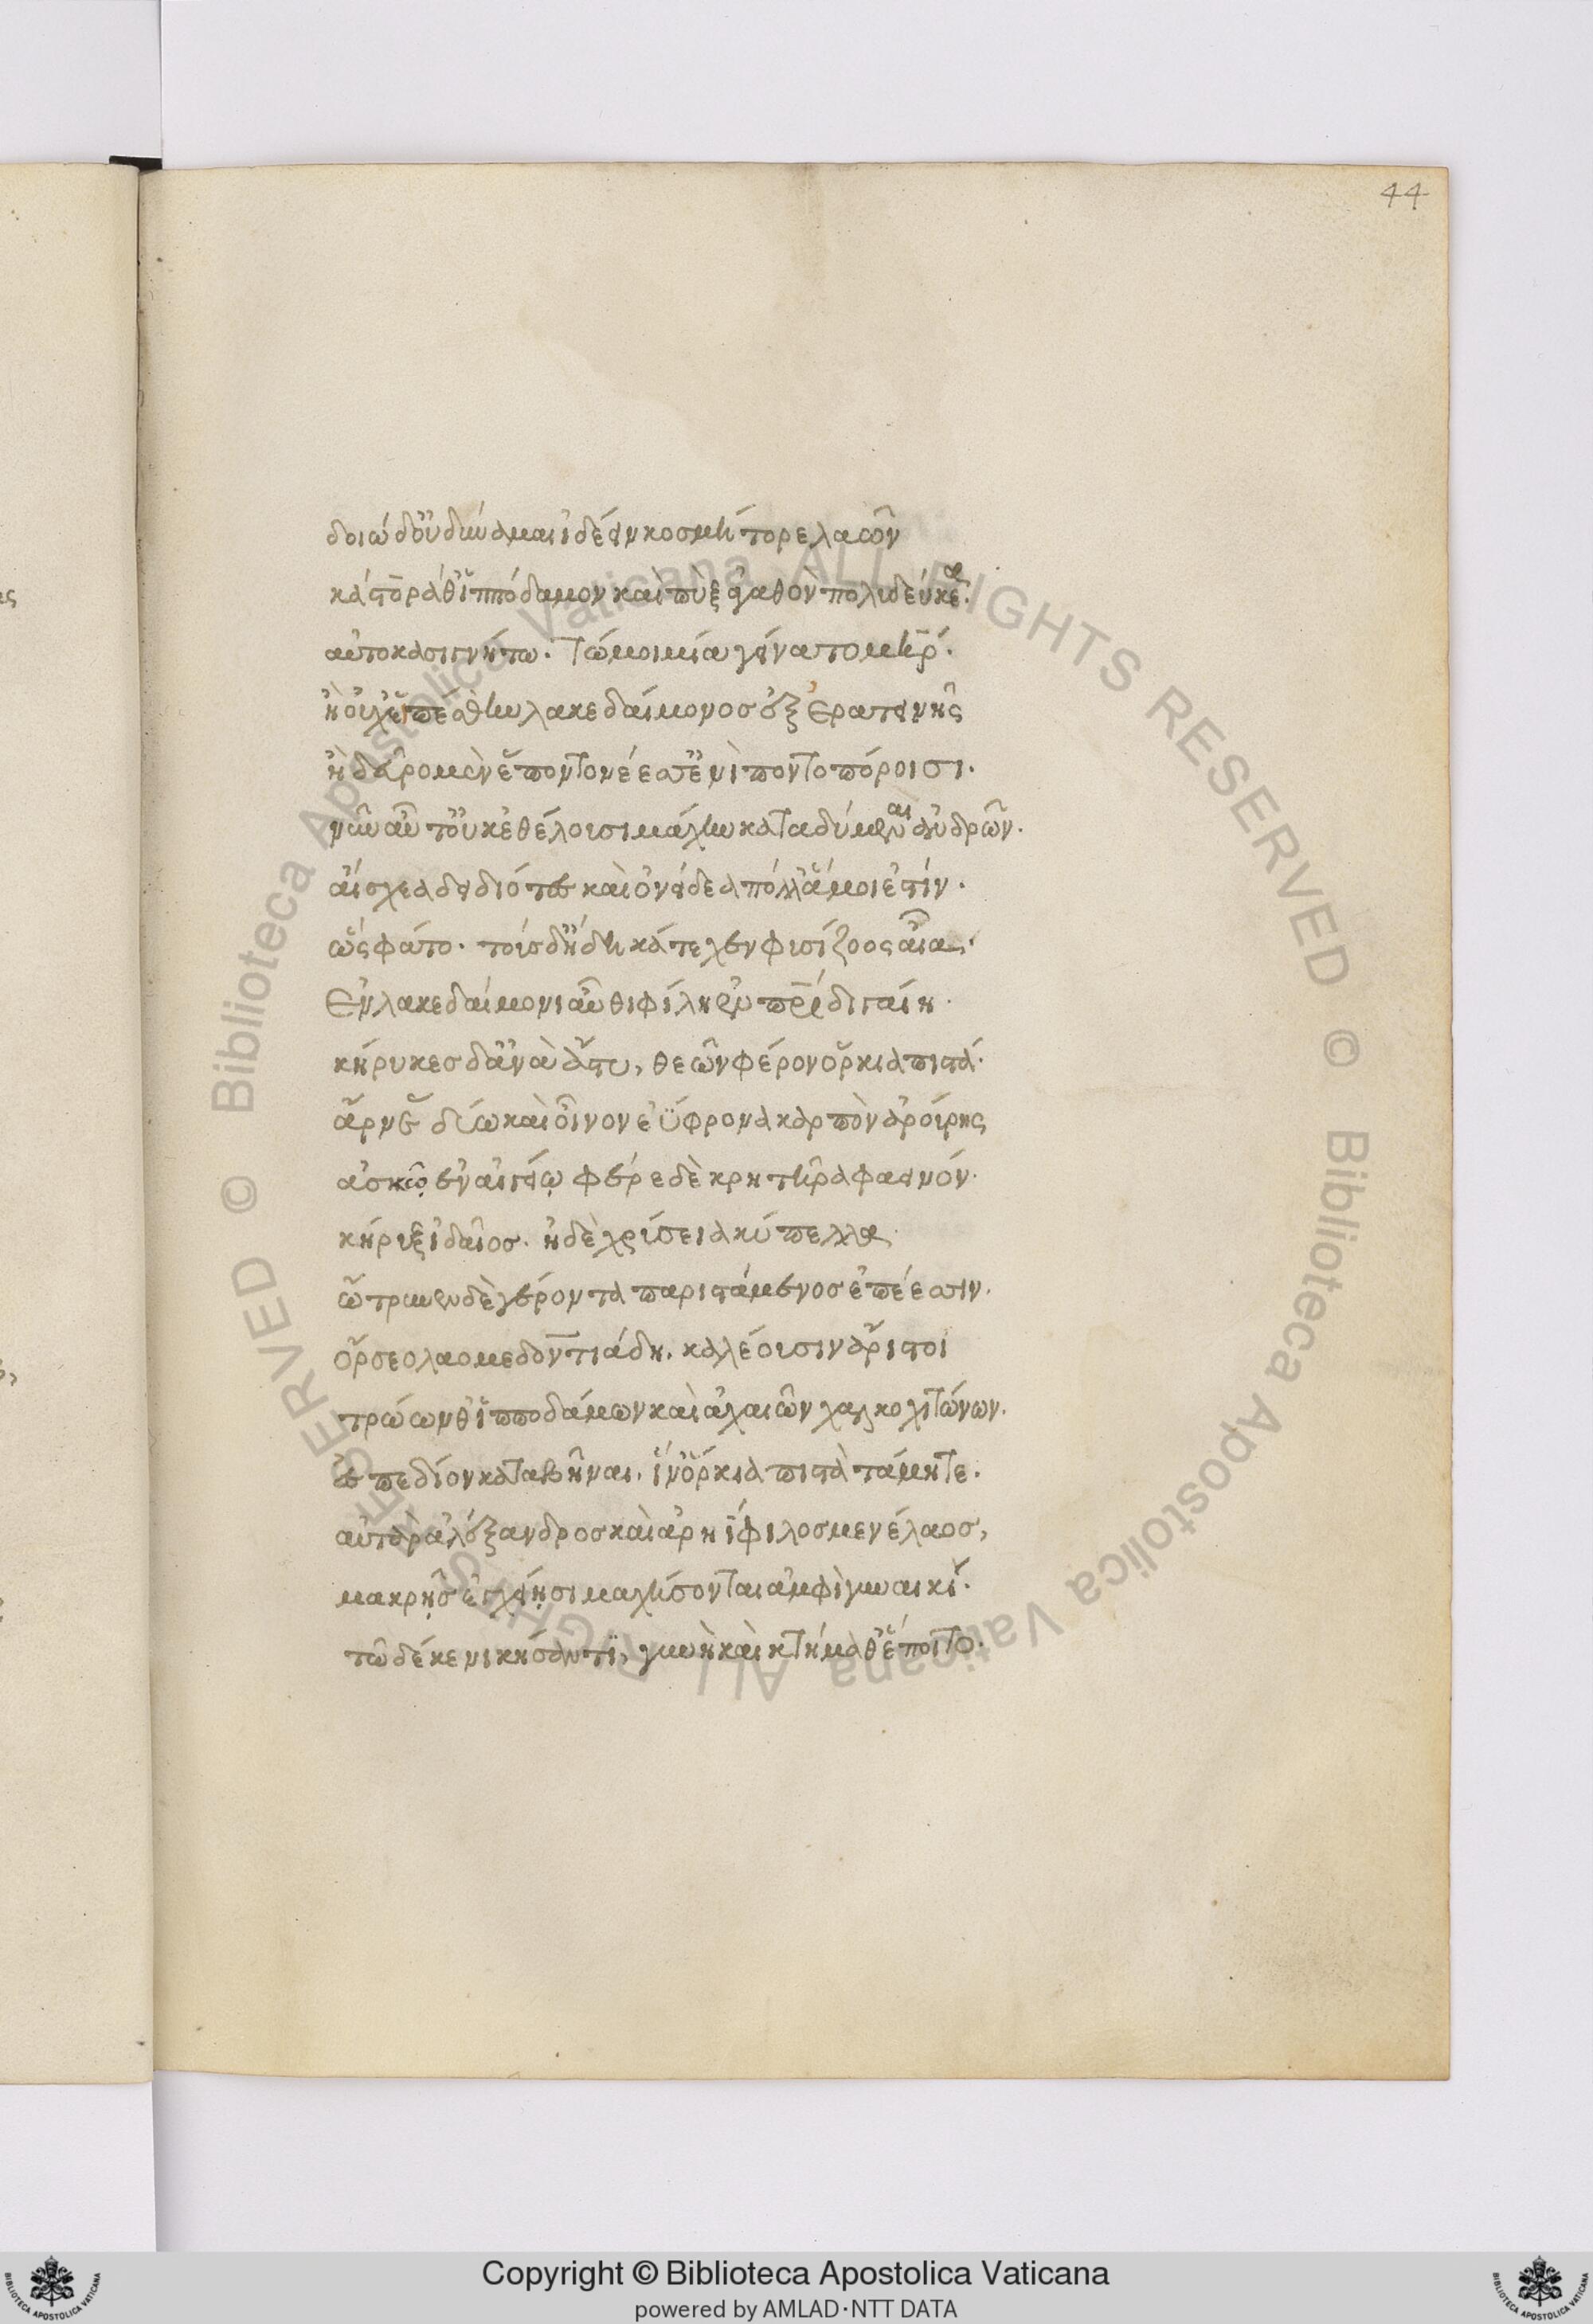 44
δοιὼ δ' οὐ δύναμαι ἰδέειν κοσμήτορε λαῶν
κάστορά θ' ἱππόδαμον καὶ πὺξ ἀγαθὸν πολυδεύκεα.
αὐτοκασιγνήτω. τώ μοι μία γείνατο μήτηρ.
ἢ οὐχ ἑπέσθην λακεδαίμονος ἐξ ἐρατεινῆς
ἢ δεῦρο μὲν ἕποντο νέεσσ' ἔνι ποντοπόροισι.
νῦν αὖτ' οὐκ ἐθέλουσι μάχην καταδύμεναι ἀνδρῶν.
αἴσχεα δειδιότες καὶ ὀνείδεα πόλλ' ἅ μοι ἐστίν.
ὣς φάτο. τοὺς δ' ἤδη κάτεχεν φυσίζοος αἶα.
ἐν λακεδαίμονι αὖθι φίλη ἐν πρίδι γαίη.
κήρυκες δ' ἀνὰ ἄστυ, θεῶν φέρον ὅρκια πιστά.
ἄρνε δύω καὶ οἶνον ἐΰφρονα καρπὸν ἀρούρης
ἀσκῷ ἐν αἰγείῳ φέρε δὲ κρητῆρα φαεινόν.
κήρυξ ἰδαῖος. ἠδὲ χρύσεια κύπελλα.
ὤτρυνεν δὲ γέροντα παριστάμενος ἐπέεσσιν.
ὄρσεο λαομεδοντιάδη. καλέουσιν ἄριστοι
τρώων θ' ἱπποδάμων καὶ ἀχαιῶν χαλκοχιτώνων.
ἐς πεδίον καταβῆναι. ἵν' ὅρκια πιστὰ τάμητε.
αὐτὰρ ἀλέξανδρος καὶ ἀρηΐφιλος μενέλαος,
μακρῇς ἐγχείῃσι μαχήσονται ἀμφὶ γυναικί.
τῶ δέ κε νικήσαντι, γυνὴ καὶ κτήμαθ' ἕποιτο.
Copyright © Biblioteca Apostolica Vaticana
powered by AMLAD·NTT DATA